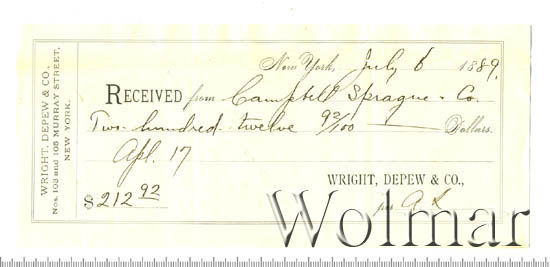 WRIGHT, DEPEW & CO.,
Nos. 103 and 105 MURRAY STREET,
NEW YORK.
New York, July 6 1889.
RECEIVED from Campbell Sprague & Co.
Two hundred twelve 92/100 Dollars.
Apl. 17
WRIGHT, DEPEW & CO.,
$212 92
per
Wolmar